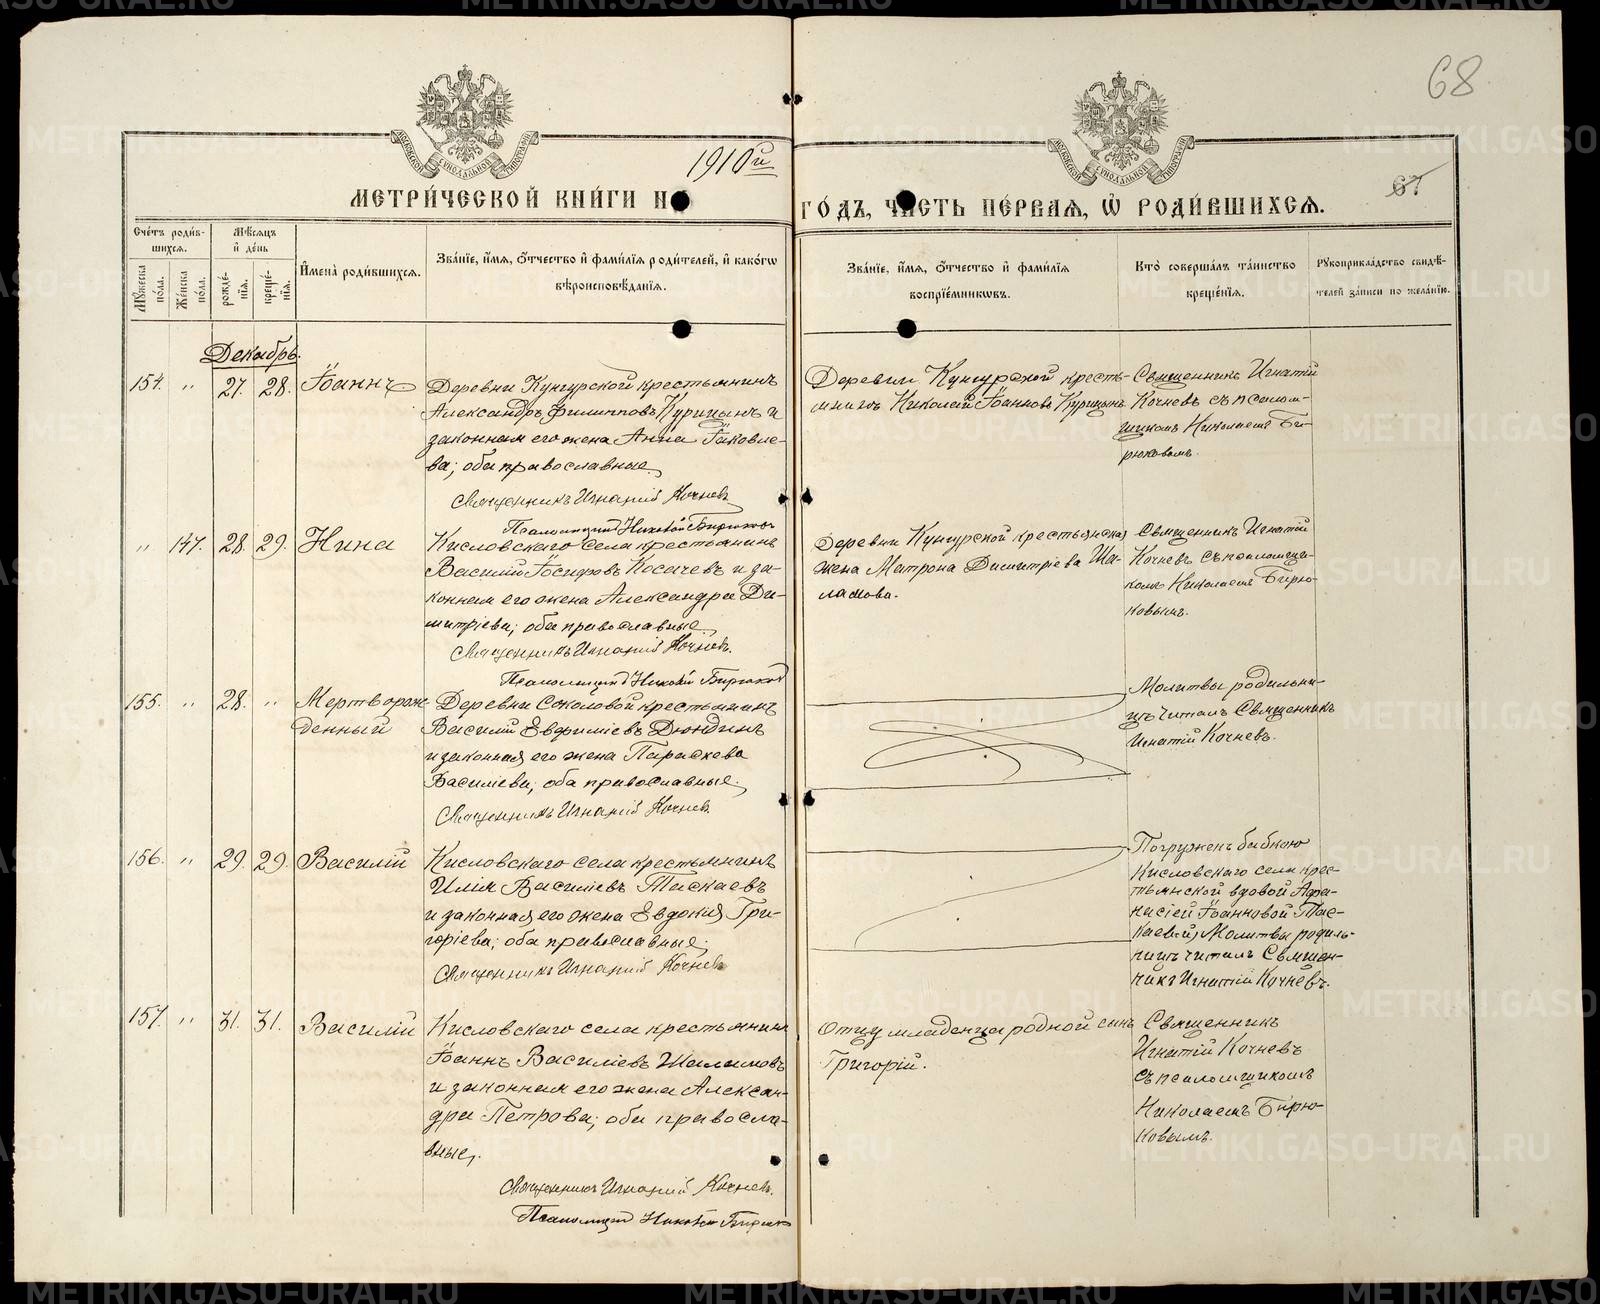 68
1910й
МЕТРИЧЕСКОЙ КНИГИ НА
ГОДЪ, ЧАСТЬ ПЕРВАЯ, Ѡ РОДИВШИХСЯ.
67
Счетъ родившихся.
Мѣсяцъ и день
Мужеска пола.
Женска пола.
рожденія.
крещенія.
Имена родившихся.
Званіе, имя, отчество и фамилія родителей, и какогѡ
вѣроисповѣданія.
Званіе, имя, отчество и фамилія
воспріемниковъ.
Кто совершалъ таинство
крещенія.
Рукоприкладство свидѣтелей записи по желанію.
Декабрь.
154. " 27. 28. Іоаннъ
Деревни Кунгурской крестьянинъ
Александръ Филипповъ Курицынъ и
законная его жена Анна Іаковле-
ва; оба православные
Священникъ Игнатій Кочневъ
Псаломщикъ Николай Бирюковъ
Деревни Кунгурской кресть-
янинъ Николай Іоанновъ Курицынъ
Священникъ Игнатій
Кочневъ съ псалом-
щикомъ Николаемъ Би-
рюковымъ.
" 147. 28. 29. Нина
Кисловскаго села крестьянинъ
Василій Іосифовъ Косачевъ и за-
конная его жена Александра Ди-
митріева; оба православные
Священникъ Игнатій Кочневъ.
Псаломщикъ Николай Бирюков
Деревни Кунгурской крестьянская
жена Матрона Димитріева Ша-
ламова.
Священникъ Игнатій
Кочневъ съ псаломщи-
комъ Николаемъ Бирю-
ковымъ.
155. " 28. " Мертворож-
денный
Деревни Соколовой крестьянинъ
Василій Евфиміевъ Дюндинъ
и законная его жена Параскева
Василіева; оба православные
Священникъ Игнатій Кочневъ.
Молитвы родильни-
цѣ читалъ Священникъ
Игнатій Кочневъ.
156. " 29. 29. Василій
Кисловскаго села крестьянинъ
Илія Василіевъ Таскаевъ
и законная его жена Евдокія Гри-
горіева; оба православные
Священникъ Игнатій Кочневъ
Погруженъ бабкою
Кисловскаго села крес-
тьянской вдовой Афа-
насіей Іоанновой Тас-
каевой, Молитвы родиль-
ницѣ читалъ Священ-
никъ Игнатій Кочневъ.
157. " 31. 31. Василій
Кисловскаго села крестьянинъ
Іоаннъ Василіевъ Шаламовъ
и законная его жена Алексан-
дра Петрова; оба правосла-
вные.
Священникъ Игнатій Кочневъ.
Псаломщикъ Николай Бирюков
Отцу младенца родной сынъ
Григорій.
Священникъ
Игнатій Кочневъ
съ псаломщикомъ
Николаемъ Бирю-
ковымъ.
METRIKI.GASO-URAL.RU